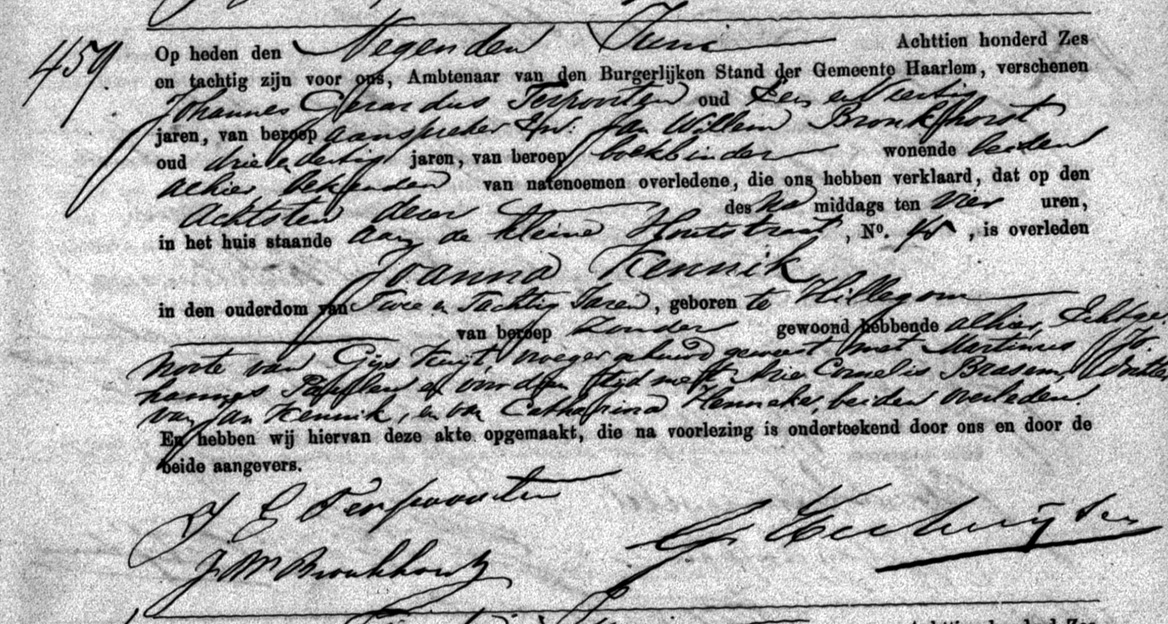 459.
Op heden den Negenden Juni Achttien honderd Zes
en tachtig zijn voor ons, Ambtenaar van den Burgerlijken Stand der Gemeente Haarlem, verschenen
Johannes Gerardus Terpoorten oud Een en Veertig
jaren, van beroep aanspreker En: Jan Willem Bronkhorst
oud drie en dertig jaren, van beroep boekbinder wonende beiden
alhier, bekenden van natenoemen overledene, die ons hebben verklaard, dat op den
Achtsten dezer des Na middags ten vier uren,
in het huis staande aan de kleine Houtstraat, No. , is overleden
Joanna Kennik
in den ouderdom van Twee en Tachtig Jaren, geboren te Hillegom
van beroep Zonder gewoond hebbende alhier, Echtge-
noote van Gijs , vroeger gehuwd geweest met Martinus Jo-
hannes en voor dien tijd met Arie Cornelis Brasem, Dochter
van Jan Kennik, en van Catharina Henneker, beiden overleden
En hebben wij hiervan deze akte opgemaakt, die na voorlezing is onderteekend door ons en door de
beide aangevers.
J G Terpoorten
J W Bronkhorst